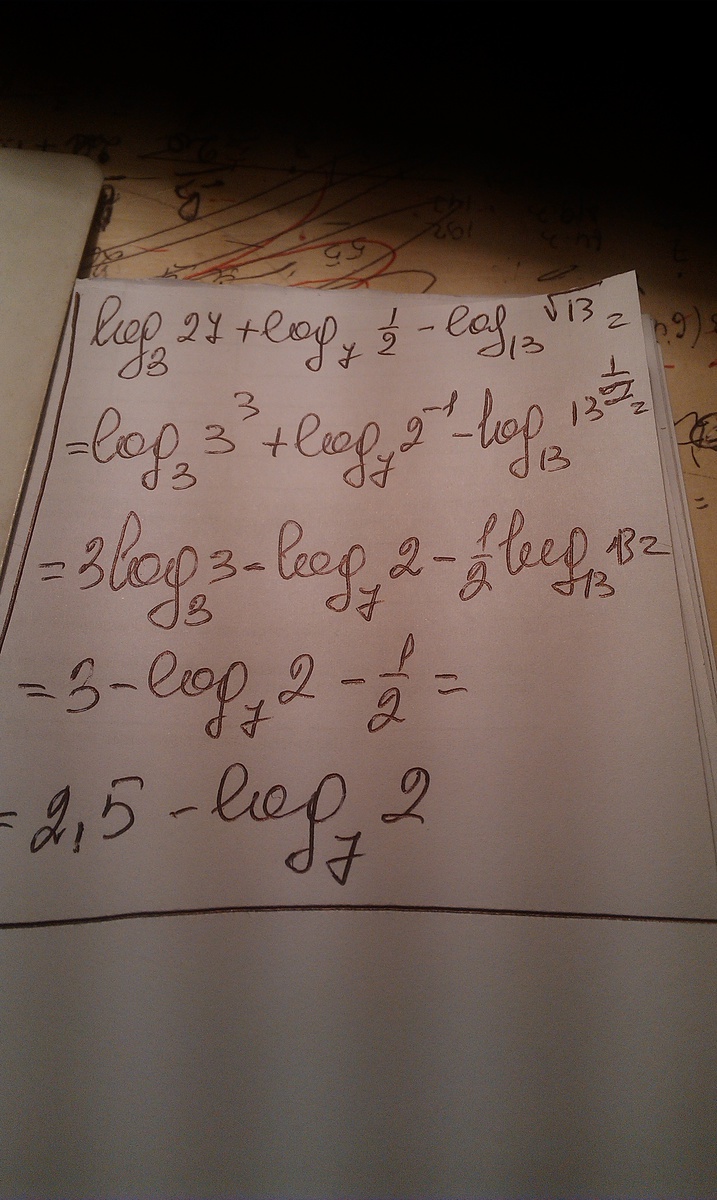 log₃ 27 + log₇ 1/2 - log₁₃ √13 =
= log₃ 3³ + log₇ 2⁻¹ - log₁₃ 13^(1/2) =
= 3 log₃ 3 - log₇ 2 - 1/2 log₁₃ 13 =
= 3 - log₇ 2 - 1/2 =
= 2,5 - log₇ 2